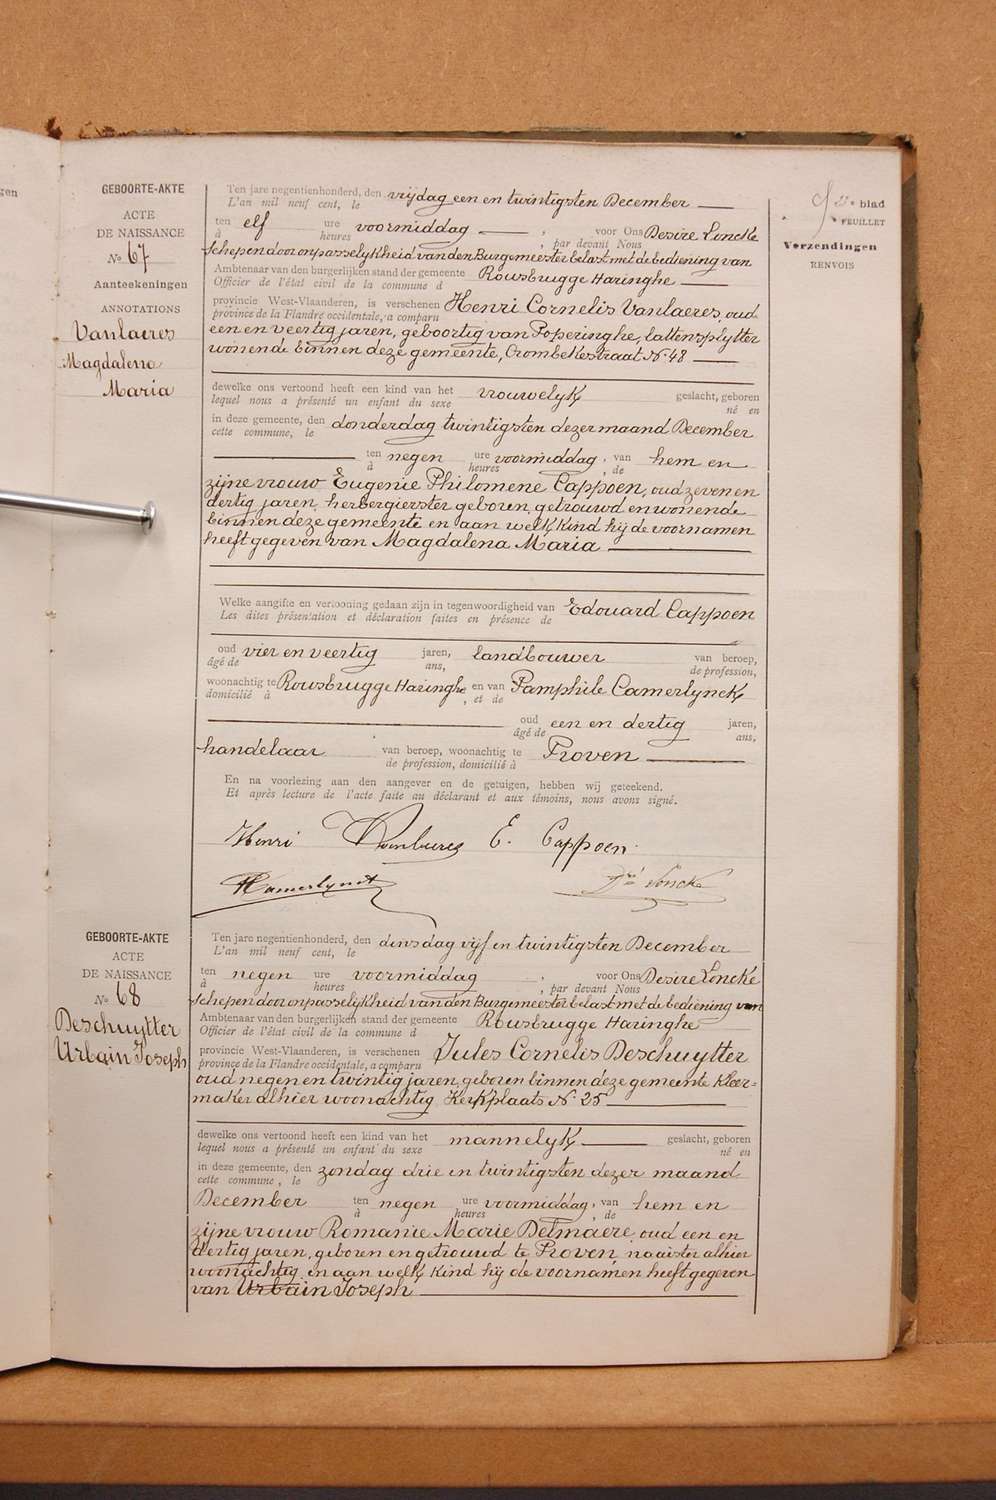 gen
GEBOORTE-AKTE
ACTE
DE NAISSANCE
No 67
Aanteekeningen
ANNOTATIONS
Vanlaeres
Magdalena
Maria
Ten jare negentienhonderd, den vrijdag een en twintigsten December
L'an mil neuf cent, le
ten elf ure voormiddag , voor Ons Desire Loncke
à heures , par devant Nous
Schepen door onpasselykheid van den Burgemeester belast met de bediening van
Ambtenaar van den burgerlijken stand der gemeente Rousbrugge Haringhe
Officier de l'état civil de la commune d
provincie West-Vlaanderen, is verschenen Henri Cornelis Vanlaeres, oud
province de la Flandre occidentale, a comparu
een en veertig jaren, geboortig van Poperinghe, lattensplytter
wonende binnen deze gemeente, Crombekestraat N. 48
dewelke ons vertoond heeft een kind van het vrouwelyk geslacht, geboren
lequel nous a présenté un enfant du sexe né en
in deze gemeente, den donderdag twintigsten dezer maand December
cette commune, le
ten negen ure voormiddag, van hem en
à heures , de
zijne vrouw Eugenie Philomene Cappoen, oud zeven en
dertig jaren, herbergierster geboren, getrouwd en wonende
binnen deze gemeente en aan welk kind hij de voornamen
heeft gegeven van Magdalena Maria
Welke aangifte en vertooning gedaan zijn in tegenwoordigheid van Edouard Cappoen
Les dites présentation et déclaration faites en présence de
oud vier en veertig jaren, landbouwer van beroep,
âgé de ans, de profession,
woonachtig te Rousbrugge Haringhe en van Pamphile Camerlynck
domicilié à , et de
oud een en dertig jaren,
âgé de ans,
handelaar van beroep, woonachtig te Proven
de profession, domicilié à
En na voorlezing aan den aangever en de getuigen, hebben wij geteekend.
Et après lecture de l'acte faite au déclarant et aux témoins, nous avons signé.
Henri E. Cappoen
Camerlynck Loncke
blad
FEUILLET
Verzendingen
RENVOIS
GEBOORTE-AKTE
ACTE
DE NAISSANCE
No 68
Deschuytter
Urbain Joseph
Ten jare negentienhonderd, den dinsdag vijf en twintigsten December
L'an mil neuf cent, le
ten negen ure voormiddag , voor Ons Desire Loncke
à heures , par devant Nous
Schepen door onpasselykheid van den Burgemeester belast met de bediening van
Ambtenaar van den burgerlijken stand der gemeente Rousbrugge Haringhe
Officier de l'état civil de la commune d
provincie West-Vlaanderen, is verschenen Jules Cornelis Deschuytter
province de la Flandre occidentale, a comparu
oud negen en twintig jaren, geboren binnen deze gemeente kleer=
maker alhier woonachtig Kerkplaats N. 25
dewelke ons vertoond heeft een kind van het mannelyk geslacht, geboren
lequel nous a présenté un enfant du sexe né en
in deze gemeente, den zondag drie en twintigsten dezer maand
cette commune, le
December ten negen ure voormiddag, van hem en
à heures , de
zijne vrouw Romanie Marie Delmaere, oud een en
dertig jaren, geboren en getrouwd te Proven naaister alhier
woonachtig en aan welk kind hij de voornamen heeft gegeven
van Urbain Joseph